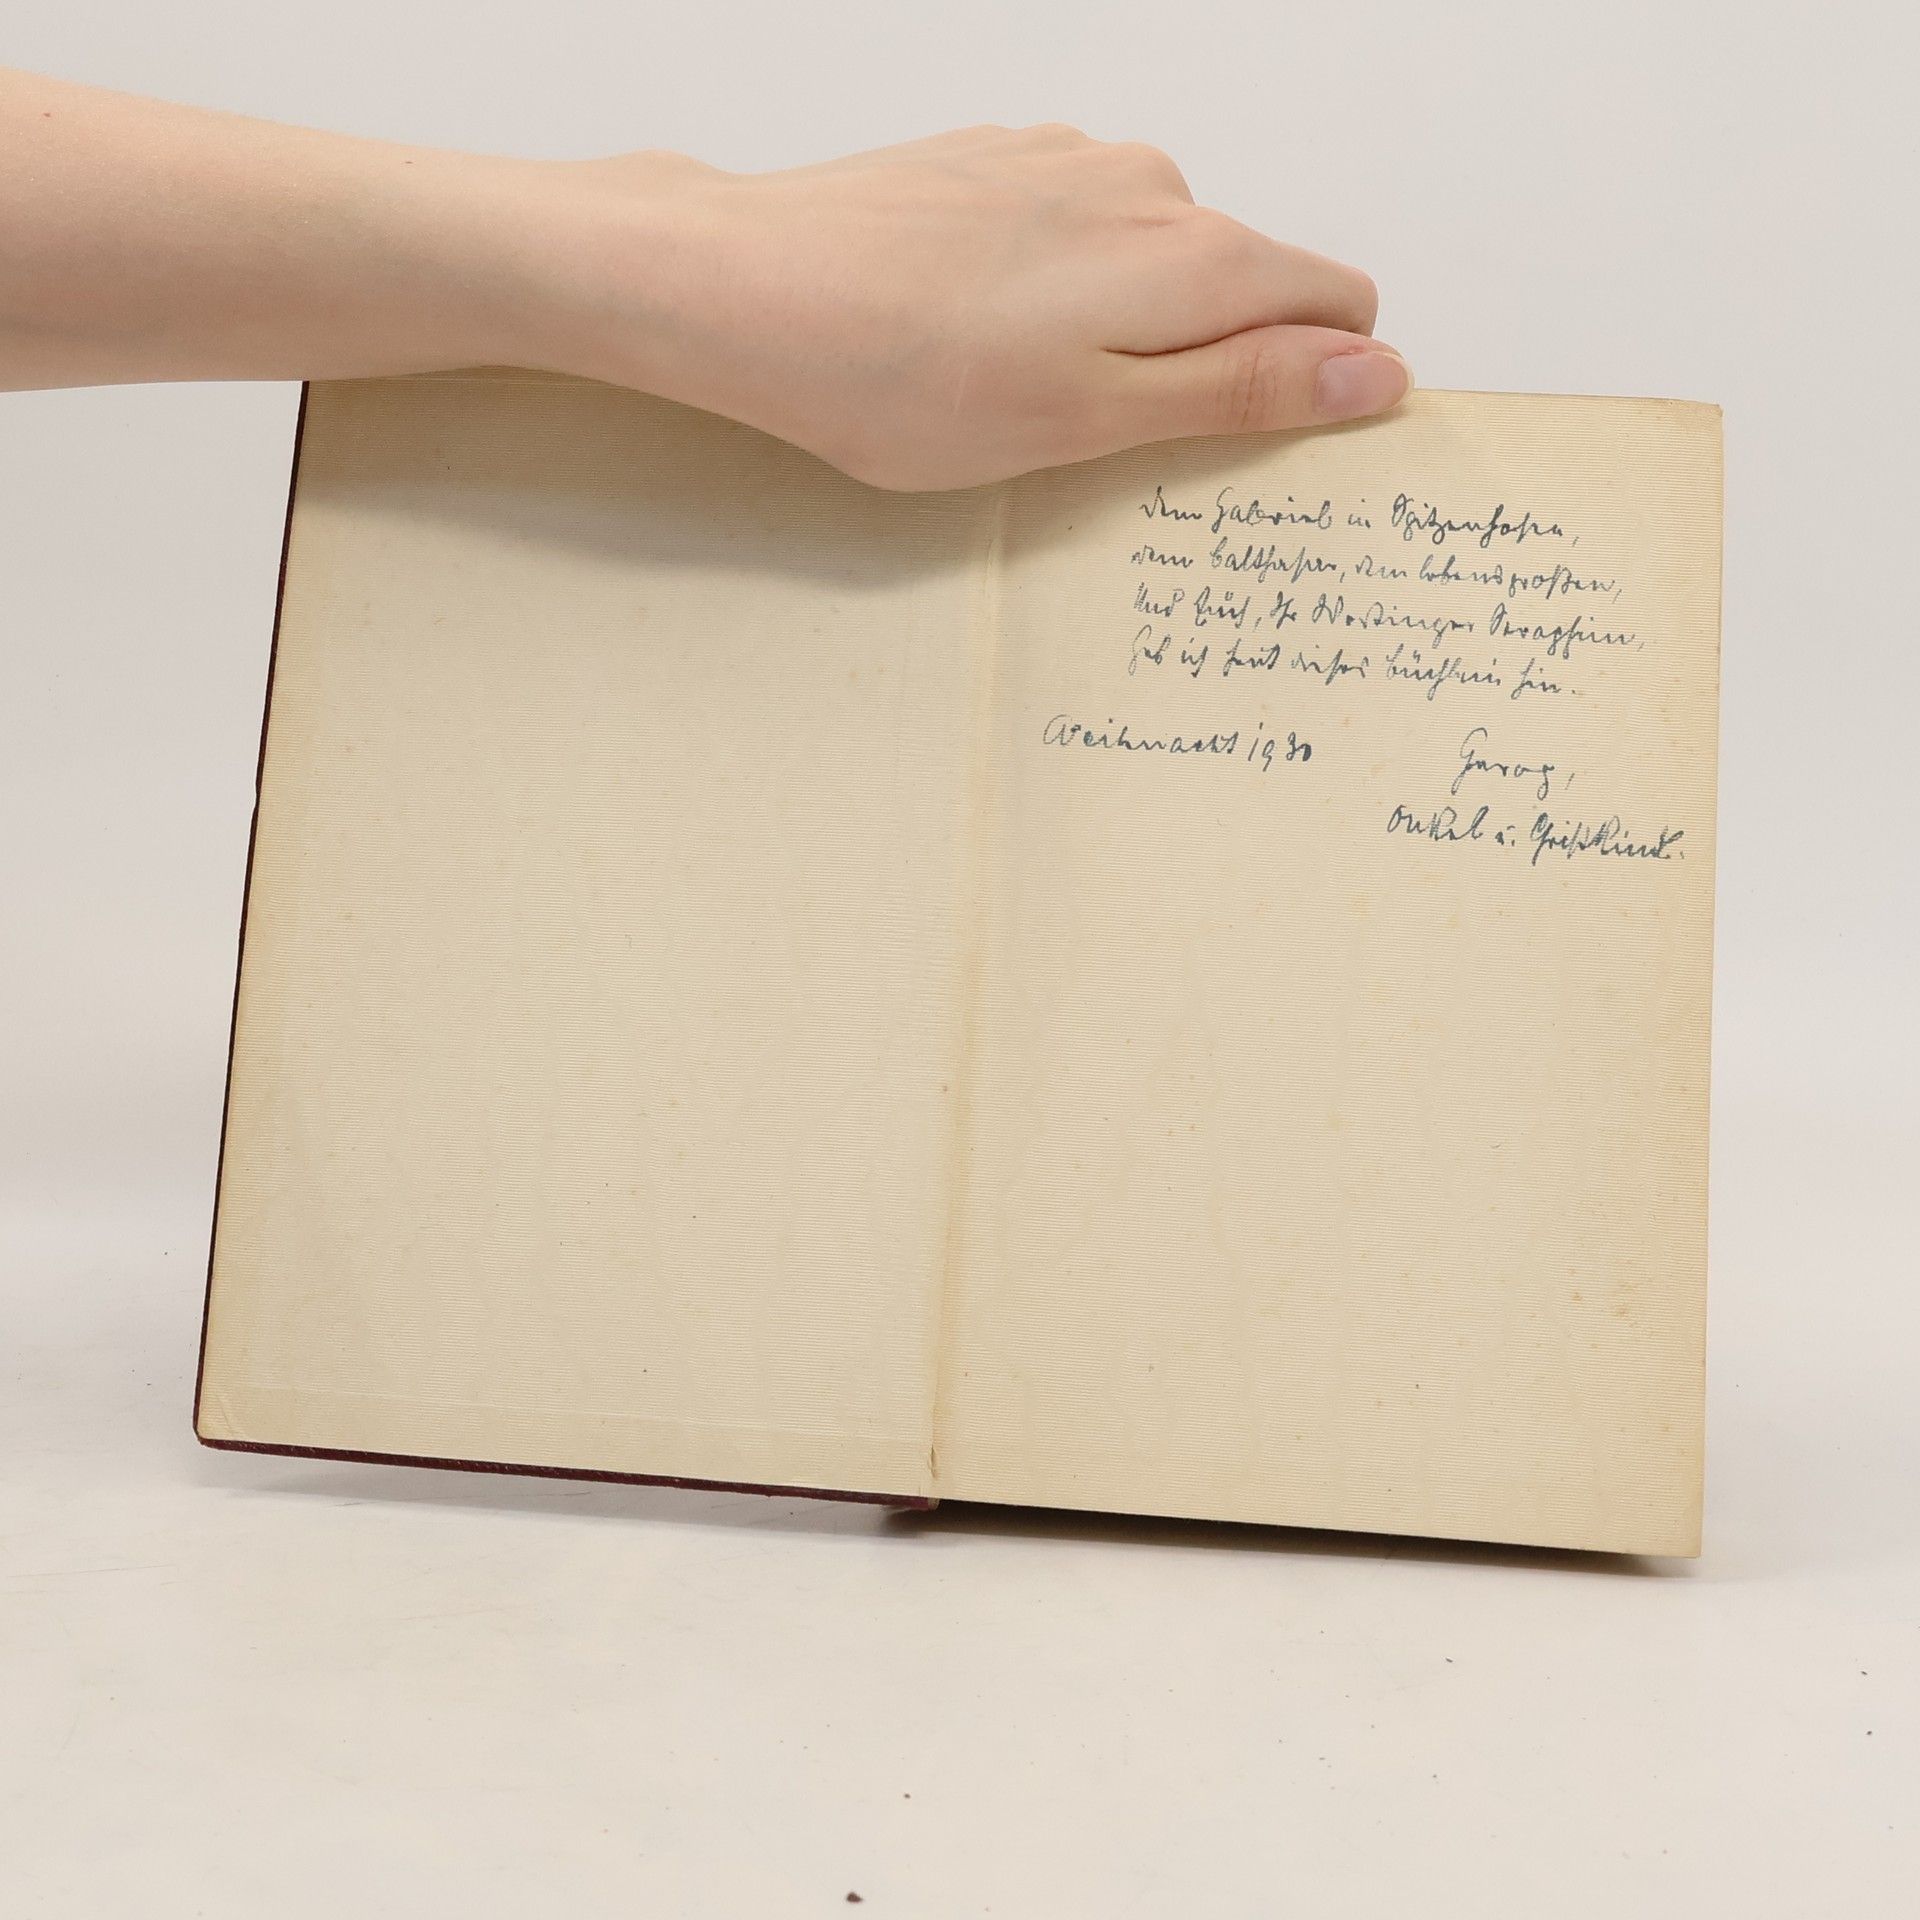 Dem Gabriel in Spitzenhosen,
dem Balthasar, dem lebensgroßen,
Und Euch, Ihr Seraphim,
Geb ich heut dieses Büchlein hin.
Weihnacht 1930
Georg,
Onkel u. Christkind.